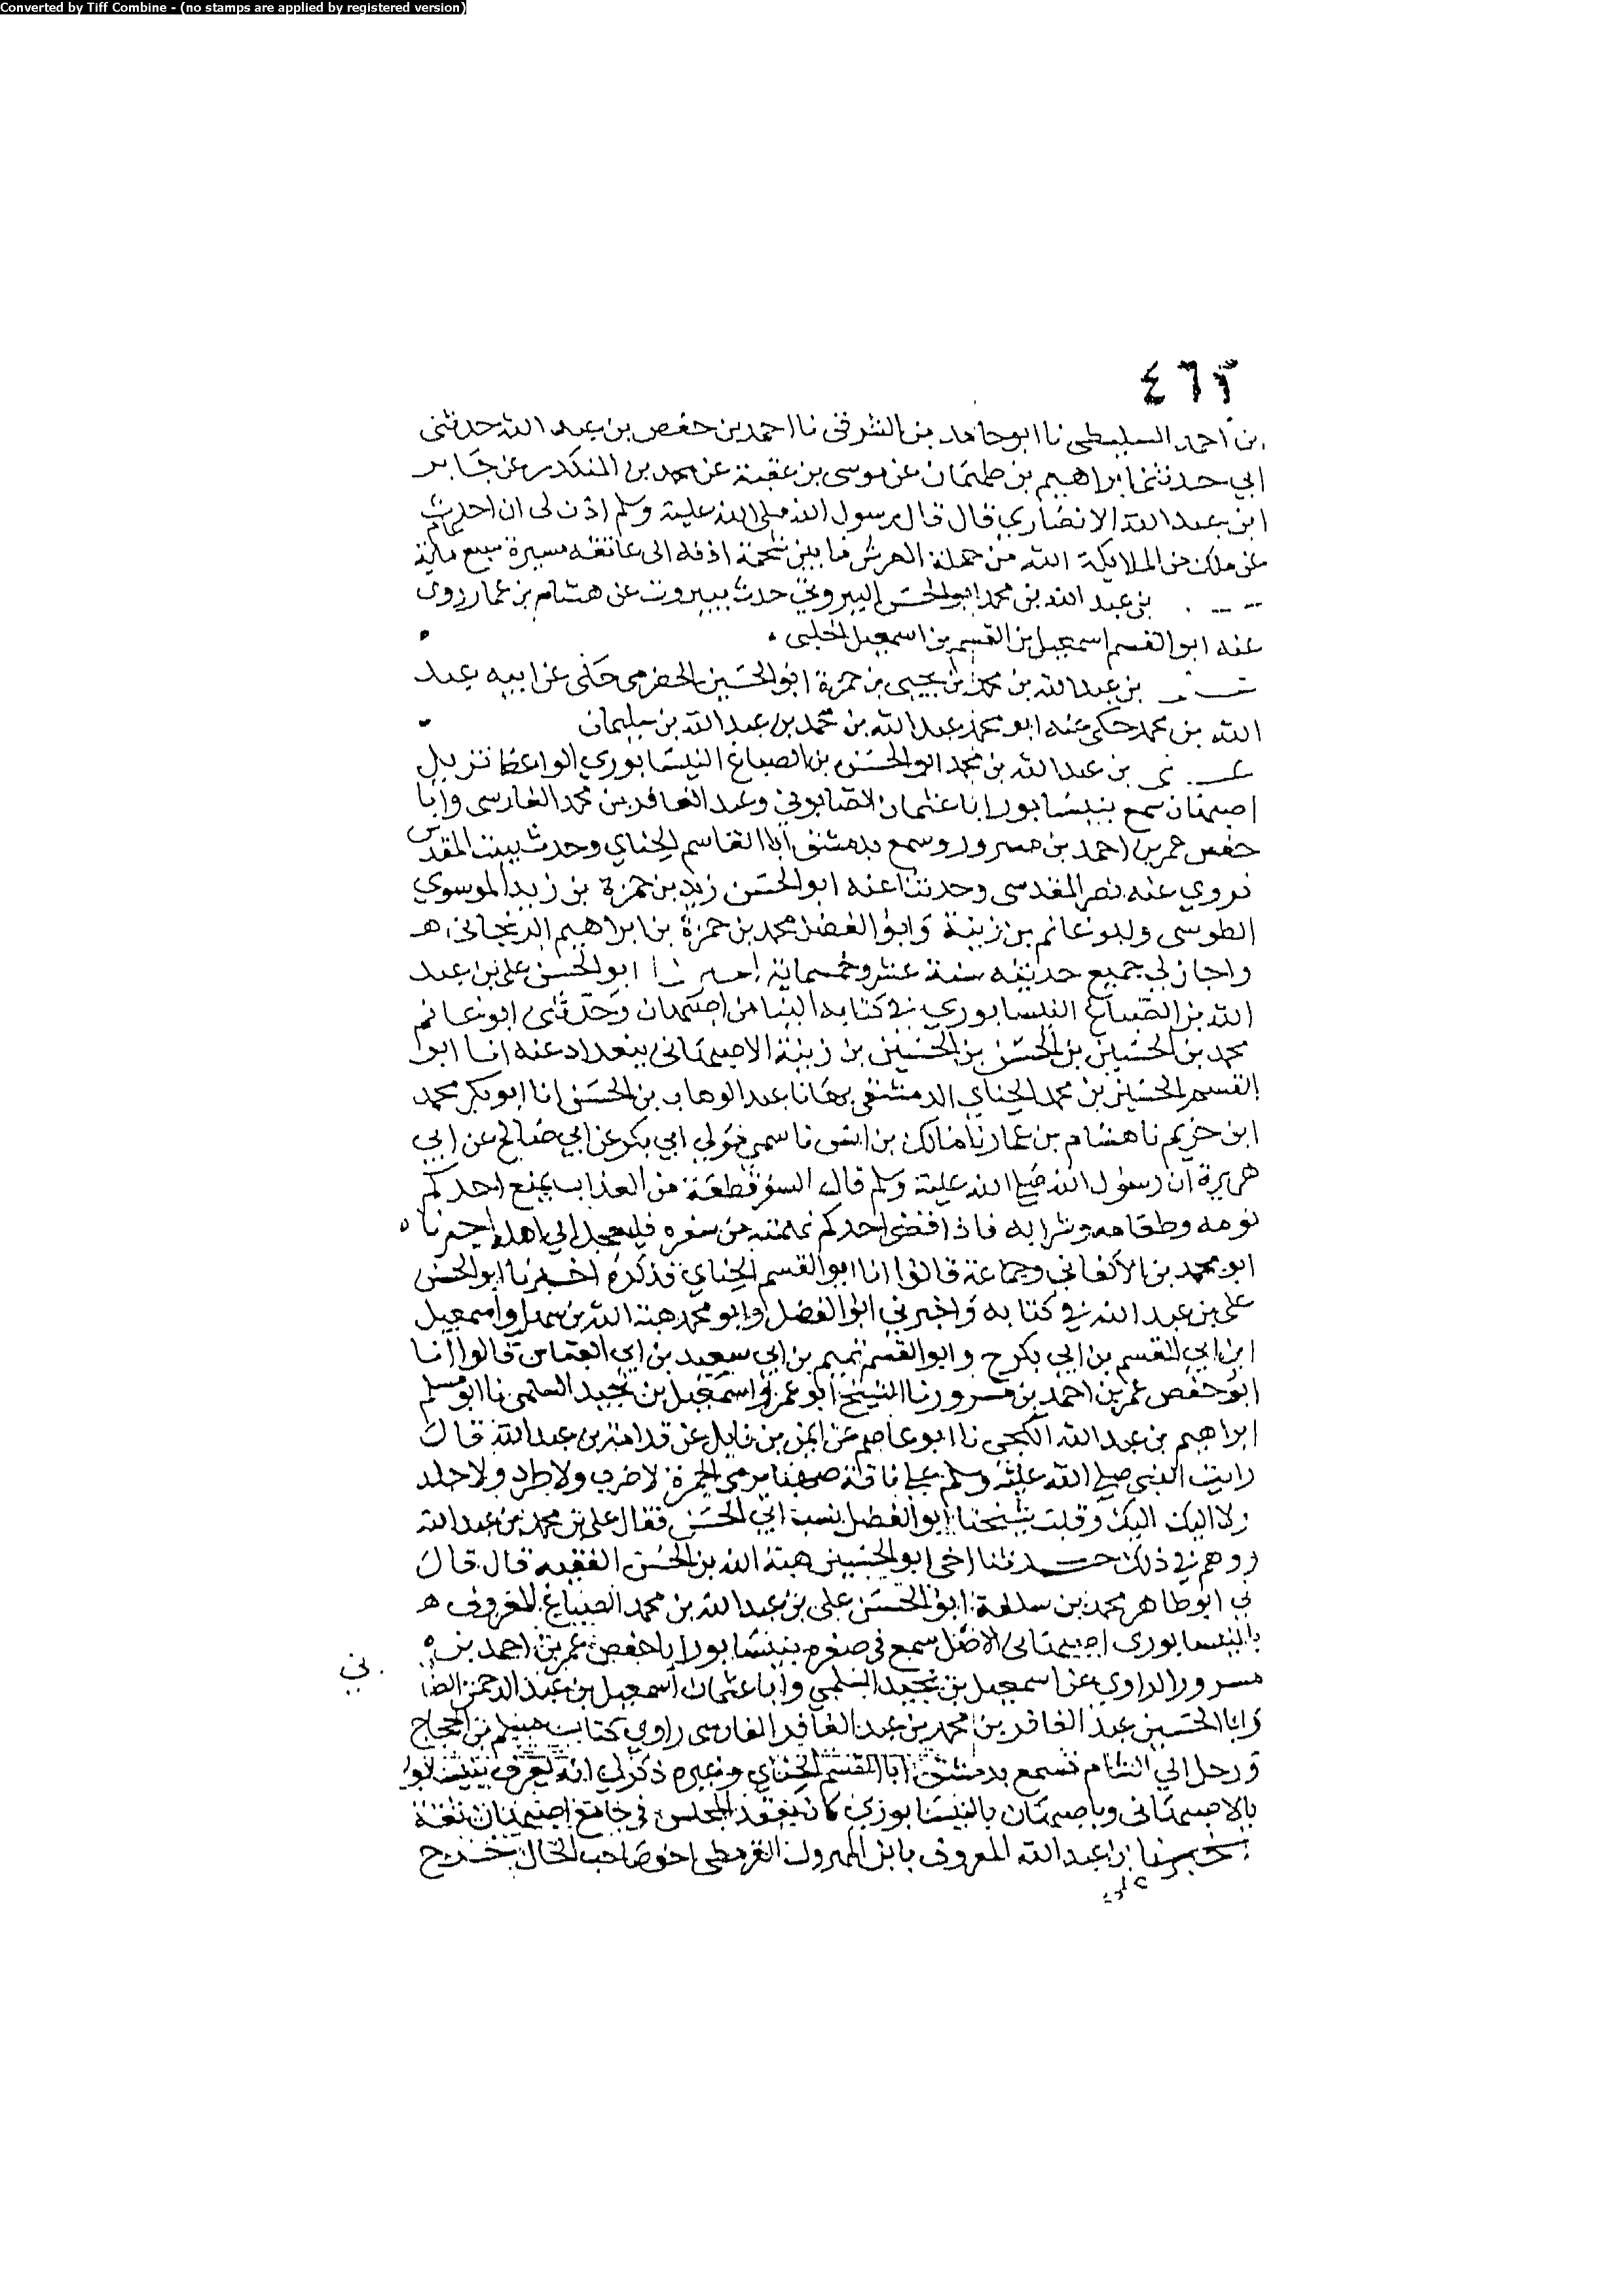 Converted by Tiff Combine - (no stamps are applied by registered version)
٤٦٢
بن احمد السليطي نا ابو حامد بن الشرقي نا احمد بن حفص بن عبد الله حدثني
ابي حدثنا ابراهيم بن طهمان عن موسى بن عقبة عن محمد بن المنكدر عن جابر
ابن عبد الله الانصاري قال قال رسول الله صلى الله عليه وسلم اذن لي ان احدث
عن ملك من الملايكة الله من حملة العرش ما بين شحمة اذنه الى عاتقه مسيرة سبع ماية
عام
بن عبد الله بن محمد ابو الحسن البيروتي حدث ببيروت عن هشام بن عمار روى
عنه ابو القسم اسمعيل بن القسم بن اسمعيل الحلبي
بن عبد الله بن محمد بن يحيى بن حمزة ابو الحسين الحضرمي حكى عن ابيه عبد
الله بن محمد حكى عنه ابو محمد عبد الله بن محمد بن عبد الله بن سليمان
علي بن عبد الله بن محمد ابو الحسن بن الصباغ النيسابوري الواعظ نزيل
اصبهان سمع بنيسابور ابا عثمان الصابوني وعبد الغافر بن محمد الفارسي وابا
حفص عمر بن احمد بن مسرور وسمع بدمشق ابا القاسم الحناي وحدث ببيت المقدس
فروي عنه نصر المقدسي وحدثنا عنه ابو الحسن زيد بن حمزة بن زيد الموسوي
الطوسي وابو غانم بن زينة وابو الفضل محمد بن حمزة بن ابراهيم الزنجاني ه
واجاز لي جميع حديثه سنة عشر وخمسماية اخبرنا ابو الحسن علي بن عبد
الله بن الصباغ النيسابوري في كتابه الينا من اصبهان وحدثني ابو غانم
محمد بن الحسين بن الحسن بن الحسين بن زينة الاصبهاني ببغداد عنه انا ابو
القسم الحسين بن محمد الحناي الدمشقي بها نا عبد الوهاب بن الحسن انا ابو بكر محمد
ابن خزيم نا هشام بن عمار نا مالك بن انس نا سمي مولي ابي بكر عن ابي صالح عن ابي
هريرة ان رسول الله صلى الله عليه وسلم قال السفر قطعة من العذاب يمنع احدكم
نومه وطعامه وشرابه فاذا قضى احدكم نهمته من سفره فليعجل الي اهله اخبرنا ه
ابو محمد بن الاكفاني وجماعة قالوا انا ابو القسم الحناي فذكره اخبرنا ابو الحسن
علي بن عبد الله في كتابه واخبرني ابو الفضل وابو محمد هبة الله بن سهل واسمعيل
ابن ابي القسم بن ابي بكر ح وابو القسم تميم بن ابي سعيد بن ابي العباس قالوا انا
ابو حفص عمر بن احمد بن مسرور نا الشيخ ابو عمرو اسمعيل بن نجيد السلمي نا ابو مسلم
ابراهيم بن عبد الله الكجي نا ابو عاصم عن ايمن بن نابل عن قدامة بن عبد الله قال
رايت النبي صلي الله عليه وسلم علي ناقة صهبا يرمي الجمرة لا ضرب ولا طرد ولا جلد
ولا اليك اليك وقلب شيخنا ابو الفضل نسب ابي الحسن فقال علي بن محمد بن عبد الله
ووهم في ذلك حدثنا اخي ابو الحسين هبة الله بن الحسن الفقيه قال قال
لي ابو طاهر محمد بن سلفة ابو الحسن علي بن عبد الله بن محمد الصباغ المعروف ه
بالنيسابوري اصبهاني الاصل سمع في صغره بنيسابور ابا حفص عمر بن احمد بن ه
مسرور الراوي عن اسمعيل بن نجيد السلمي وابا عثمان اسمعيل بن عبد الرحمن الصا
ني
وابا الحسين عبد الغافر بن محمد بن عبد الغافر الفارسي راوي كتاب مسلم بن الحجاج
ورحل الي الشام فسمع بدمشق ابا القسم الحناي وغيره ذكر لي انه يعرف بنيسابور
بالاصبهاني وباصبهان بالنيسابوري كان يعقد المجلس في جامع اصبهان ثقة
بن عبد الله المعروف بابن المهرول القرمطي اخو صاحب الخال خرج
علي